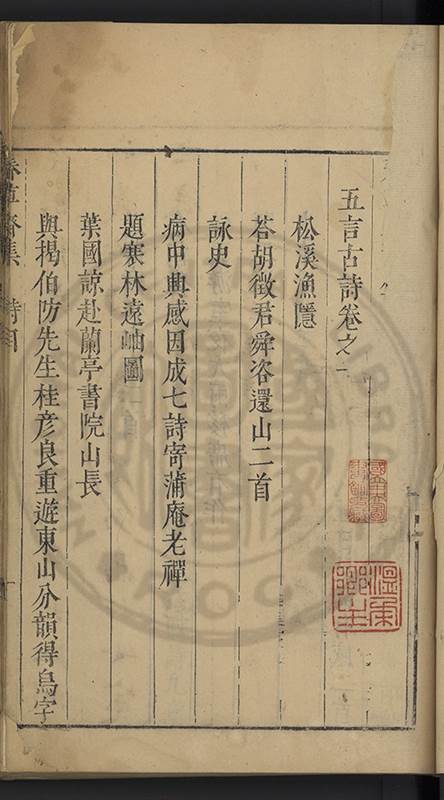 五言古詩卷之一
松溪漁隱
荅胡徵君舜咨還山二首
詠史
病中興感因成七詩寄蒲庵老禪
題寒林遠岫圖
葉國諒赴蘭亭書院山長
與揭伯防先生桂彥良重遊東山分韻得烏字